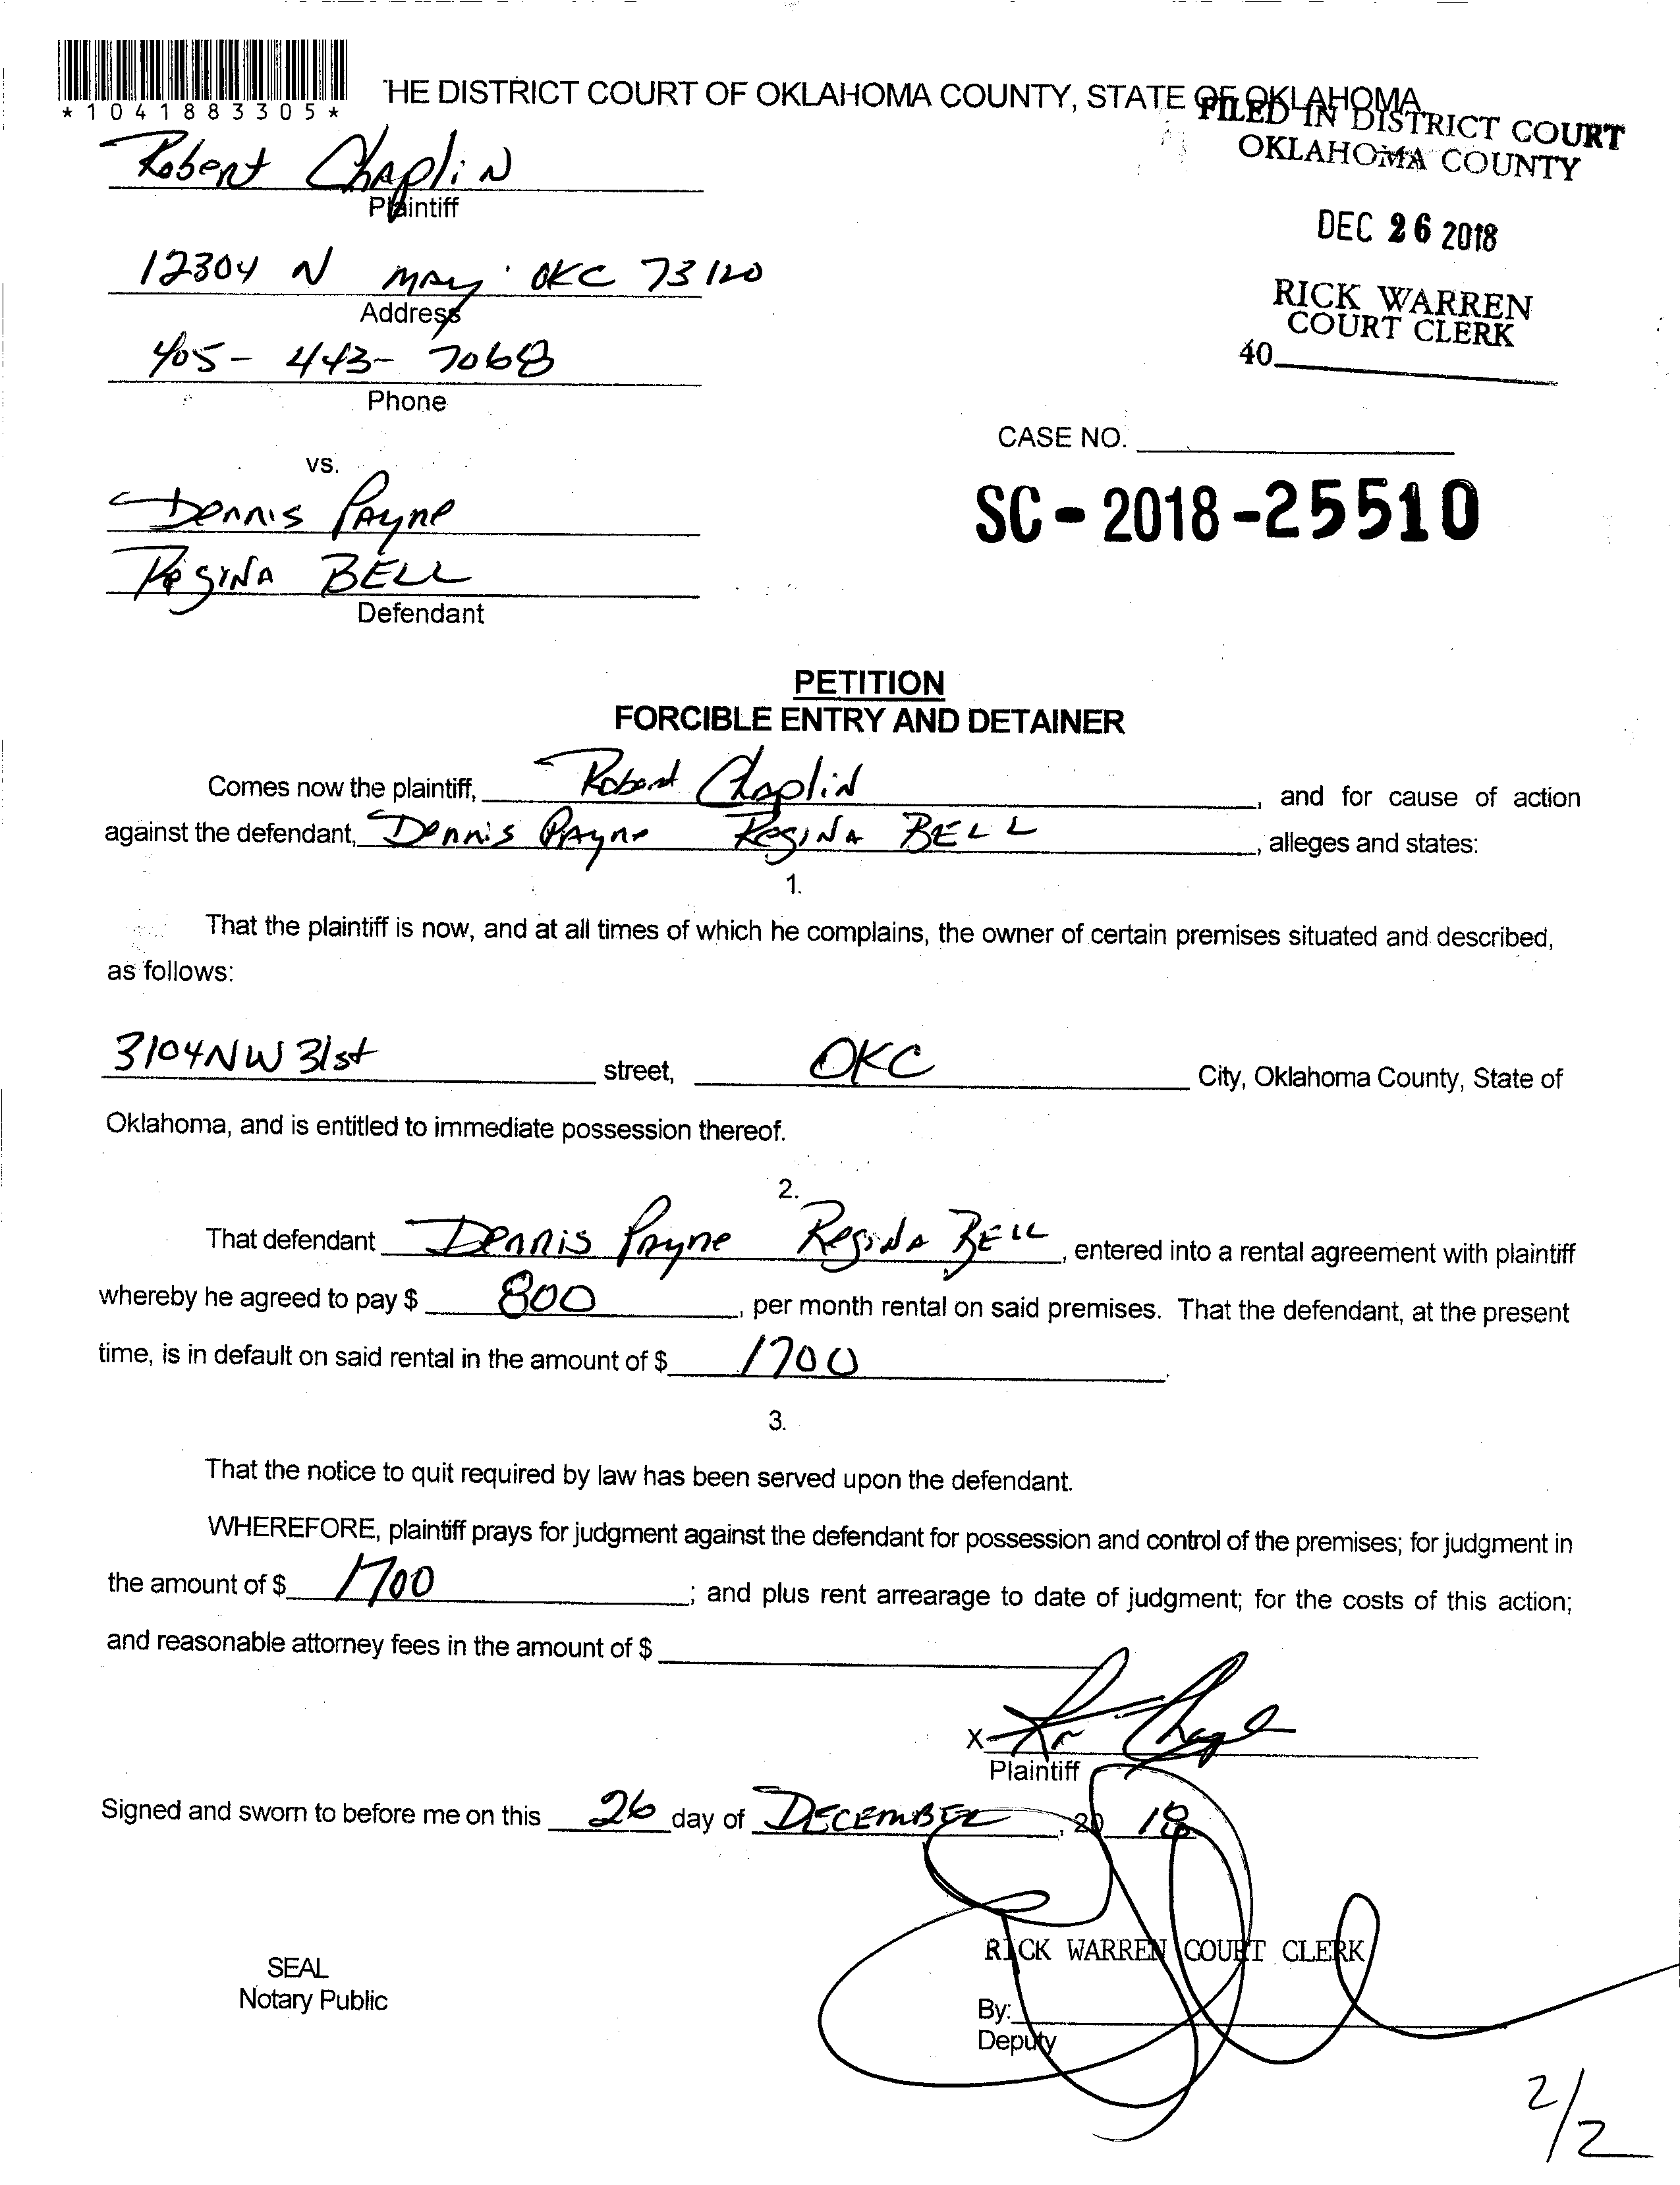 *1041883305*
HE DISTRICT COURT OF OKLAHOMA COUNTY, STATE OF OKLAHOMA
FILED IN DISTRICT COURT
OKLAHOMA COUNTY
Robert Chaplin
Plaintiff
DEC 26 2018
12304 N May OKC 73120
Address
RICK WARREN
COURT CLERK
40
405-443-7068
Phone
CASE NO.
vs.
Dennis Payne
SC-2018-25510
Regina BELL
Defendant
PETITION
FORCIBLE ENTRY AND DETAINER
Comes now the plaintiff, Robert Chaplin, and for cause of action
against the defendant, Dennis Payne Regina BELL, alleges and states:
1.
That the plaintiff is now, and at all times of which he complains, the owner of certain premises situated and described,
as follows:
3104 NW 31st street, OKC City, Oklahoma County, State of
Oklahoma, and is entitled to immediate possession thereof.
2.
That defendant Dennis Payne Regina BELL, entered into a rental agreement with plaintiff
whereby he agreed to pay $ 800, per month rental on said premises. That the defendant, at the present
time, is in default on said rental in the amount of $ 1700.
3.
That the notice to quit required by law has been served upon the defendant.
WHEREFORE, plaintiff prays for judgment against the defendant for possession and control of the premises; for judgment in
the amount of $ 1700; and plus rent arrearage to date of judgment; for the costs of this action;
and reasonable attorney fees in the amount of $
X
Plaintiff
Signed and sworn to before me on this 26 day of DECEMBER, 20 18
RICK WARREN COURT CLERK
SEAL
Notary Public
By:
Deputy
2/2